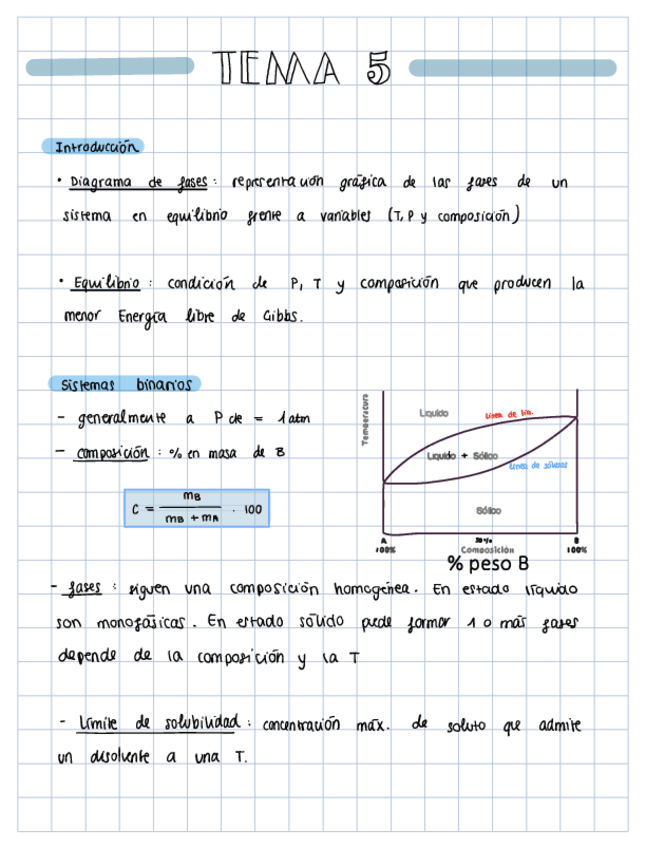 TEMA 5
Introducción
• Diagrama de fases : representación gráfica de las fases de un
sistema en equilibrio frente a variables (T, P y composición)
• Equilibrio : condición de P, T y composición que producen la
menor Energía libre de Gibbs.
Sistemas binarios
- generalmente a P cte = 1 atm
- composición : % en masa de B
C = mB / mB + mA · 100
Temperatura
Liquido
Línea de liq.
Liquido + Sólido
Línea de sólidos
Sólido
A 50% B
100% Composición 100%
% peso B
- fases : siguen una composición homogénea. En estado líquido
son monofásicas. En estado sólido puede formar 1 o más fases
depende de la composición y la T
- Límite de solubilidad : concentración máx. de soluto que admite
un disolvente a una T.